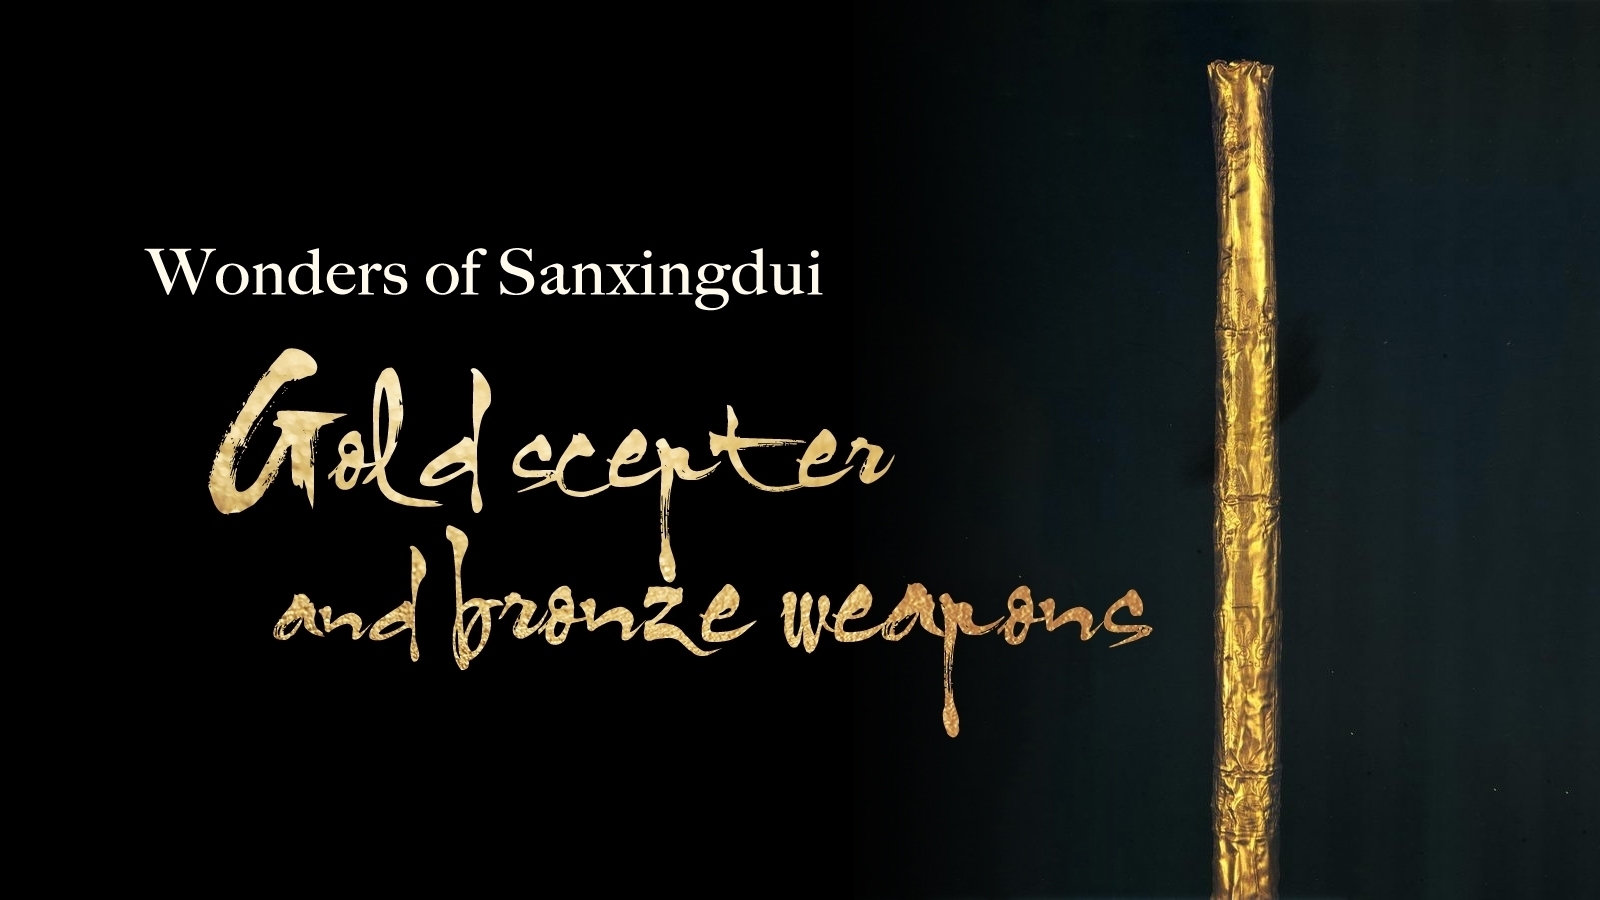 Wonders of Sanxingdui
Gold scepter
and bronze weapons